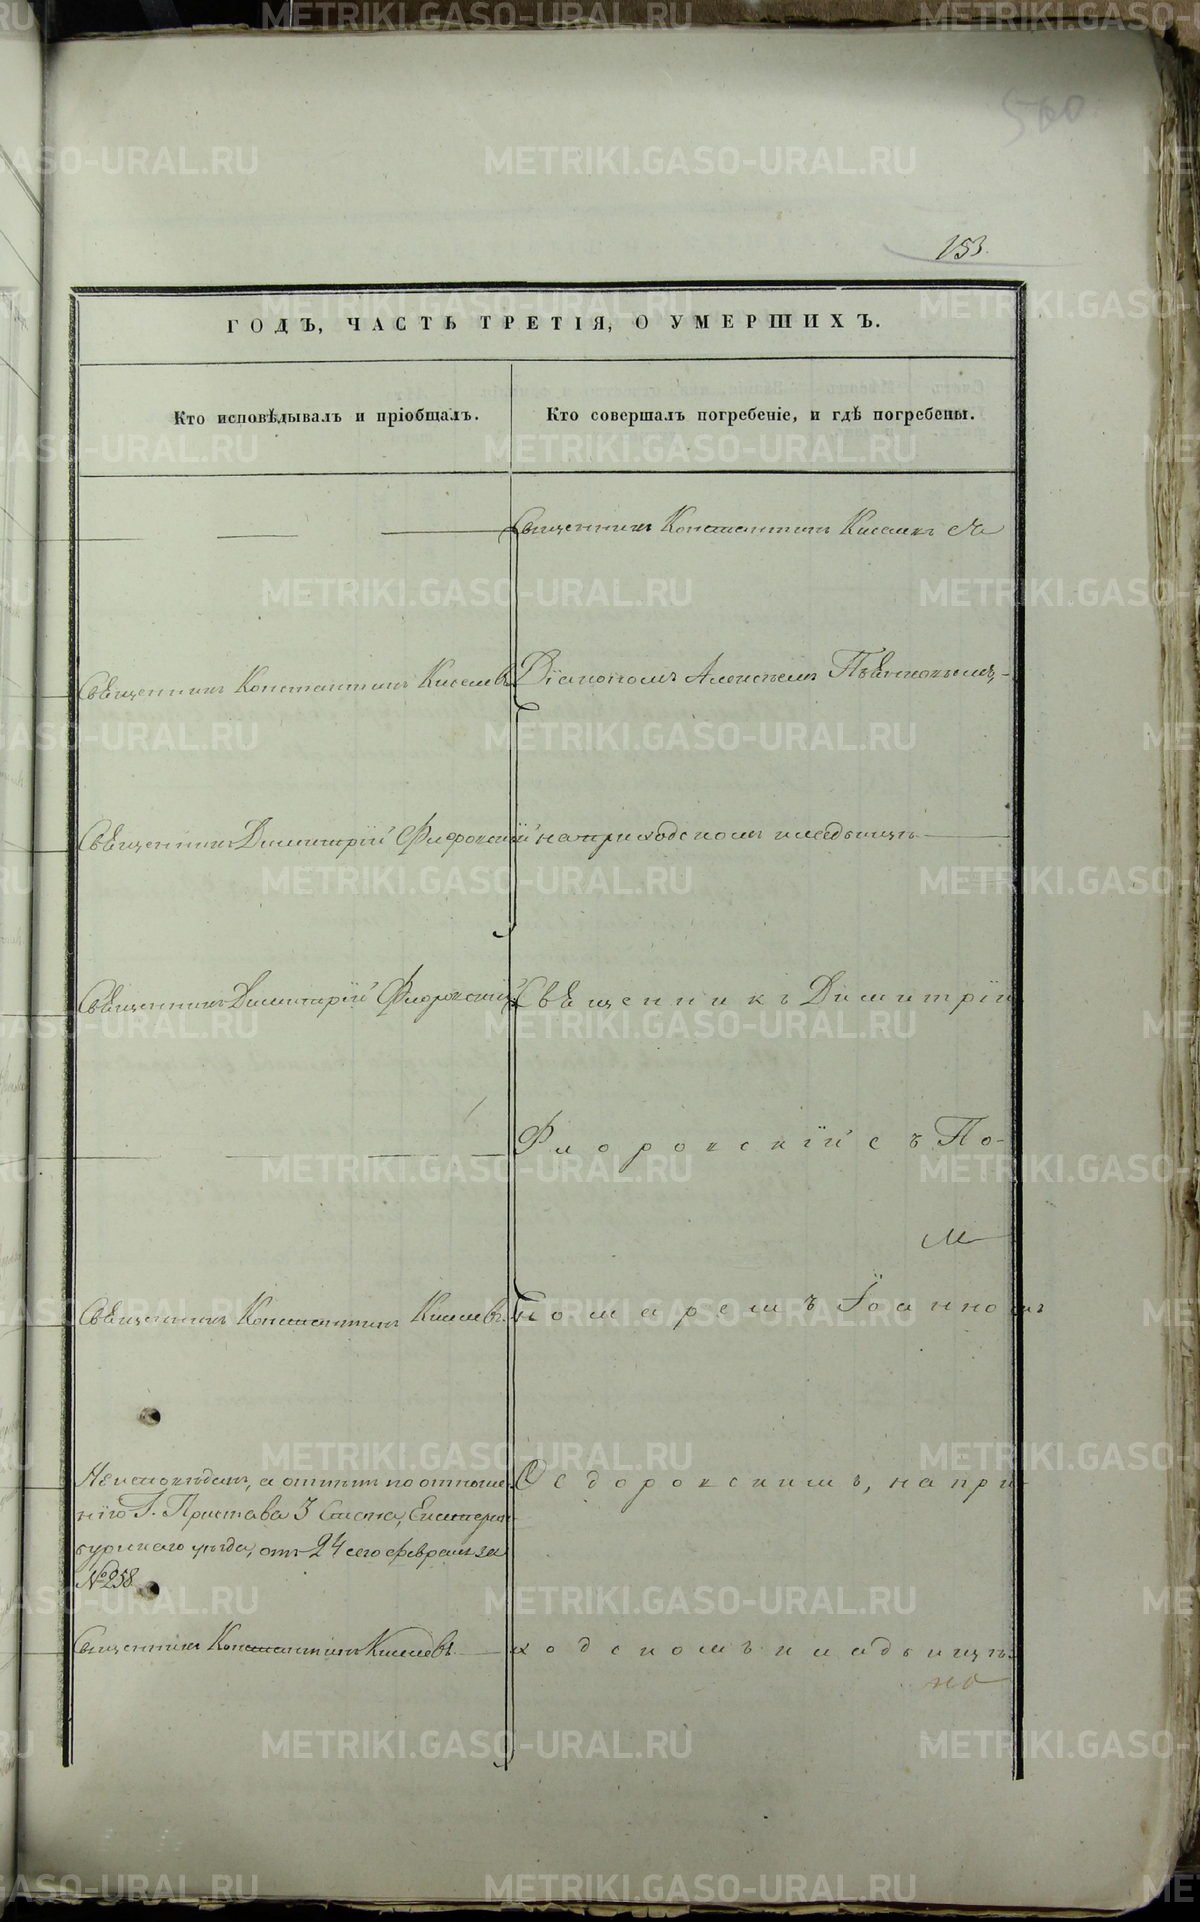 500
153.
ГОДЪ, ЧАСТЬ ТРЕТІЯ, О УМЕРШИХЪ.
Кто исповѣдывалъ и пріобщалъ.
Кто совершалъ погребеніе, и гдѣ погребены.
Священникъ Константинъ Киселевъ съ
Священникъ Константинъ Киселевъ
Діакономъ Алексѣемъ
Священникъ Димитрій Флоровскій
на приходскомъ кладбищѣ
Священникъ Димитрій Флоровскій
Священникъ Димитрій
Флоровскій съ По-
Священникъ Константинъ Киселевъ.
номаремъ Іоанномъ
Неисповѣданъ, а отпетъ по отноше-
нію Г. Пристава 3 Стана, Екатерин-
бургскаго уѣзда, отъ 24 сего февраля за
№ 258
Ѳедоровскимъ, на при-
Священникъ Константинъ Киселевъ.
ходскомъ кладбищѣ.
METRIKI.GASO-URAL.RU